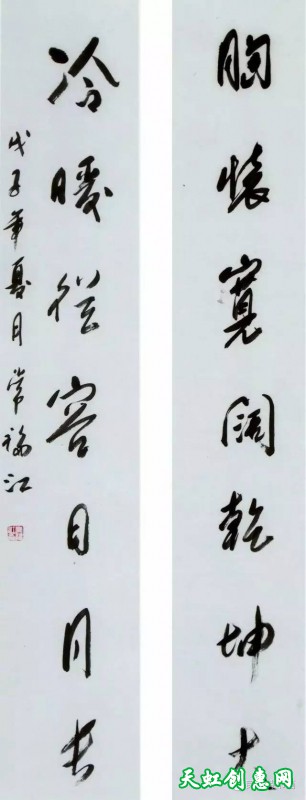 胸懷寬闊乾坤大
冷暖從容日月长
戊子年夏月常福江
天虹创惠网